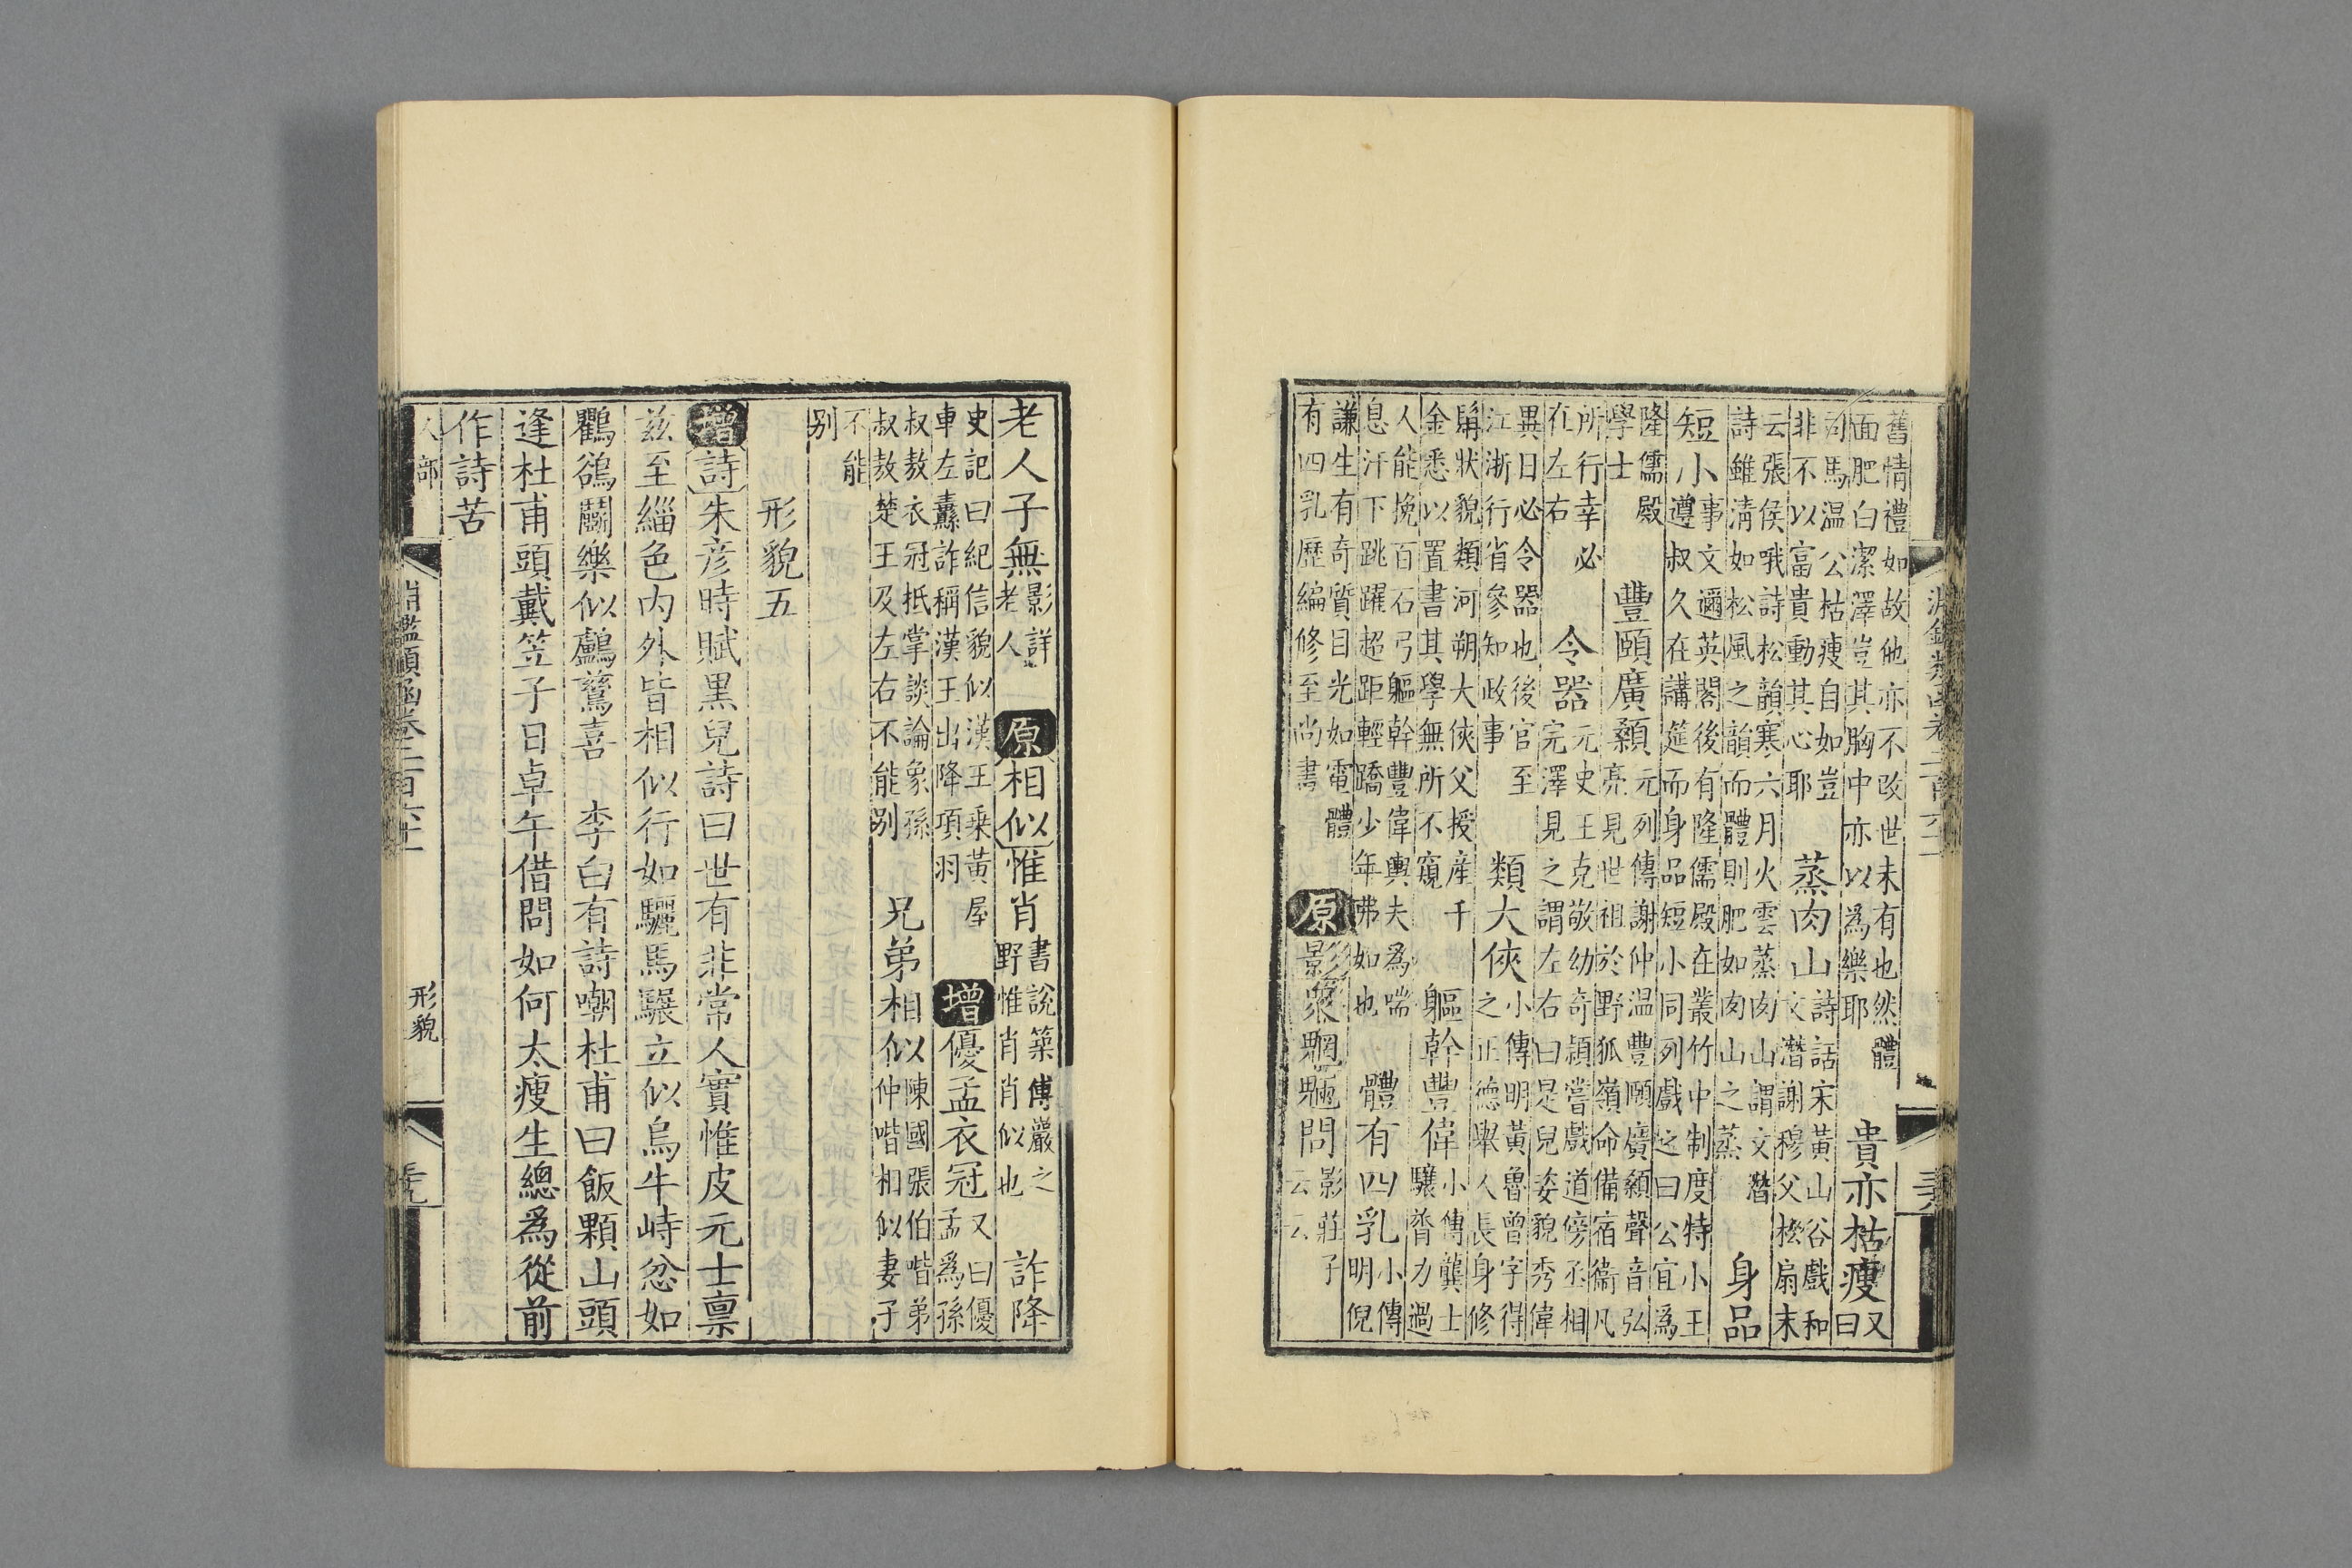 舊情禮如故他亦不改世未有也然體
面肥白潔澤豈其胸中亦以為樂耶
貴亦枯瘦
又
曰
司馬温公枯瘦自如豈
非不以富貴動其心耶
蒸肉山
詩話宋黃山谷戲和
文潛謝穆父松扇末
云張侯哦詩松韻寒六月火雲蒸肉山謂文潛
詩雖清如松風之韻而體則肥如肉山之蒸
身品
短小
事文邇英閣後有隆儒殿在叢竹中制度特小王
遵叔久在講筵而身品短小同列戲之曰公宜爲
隆儒殿
學士
豐頤廣顙
元列傳謝仲温豐頤廣顙聲音弘
亮見世祖於野狐嶺命備宿衞凡
所行幸必
在左右
令器
元史王克敬幼奇頴嘗戲道傍丞相
完澤見之謂左右曰是兒姿貌秀偉
異日必令器也後官至
江浙行省參知政事
類大俠
小傳明黃魯曾字得
之正德舉人長身修
髯狀貌類河朔大俠父授産千
金悉以置書其學無所不窺
軀幹豐偉
小傳龔士
驤膂力過
人能挽百石弓軀幹豐偉輿夫為喘
息汗下跳躍超距輕蹻少年弗如也
體有四乳
小傳
明倪
謙生有奇質目光如電體
有四乳歷編修至尚書
原
影衆魍魎問
影莊子
云云
老人子無
影詳
老人
原相似惟肖
書說築傅巖之
野惟肖肖似也
詐降
史記曰紀信貌似漢王乘黃屋
車左纛詐稱漢王出降項羽
增優孟衣冠
又曰優
孟爲孫
叔敖衣冠抵掌談論象孫
叔敖楚王及左右不能别
兄弟相似
陳國張伯喈弟
仲喈相似妻子
不能
别
形貌五
增詩朱彥時賦黑兒詩曰世有非常人實惟皮元士禀
兹至緇色内外皆相似行如驪馬驟立似烏牛峙忿如
鸜鵒鬭樂似鸕鶿喜　李白有詩嘲杜甫曰飯顆山頭
逢杜甫頭戴笠子日卓午借問如何太瘦生總爲從前
作詩苦
人部
淵鑑類函卷二百六十一
形貌